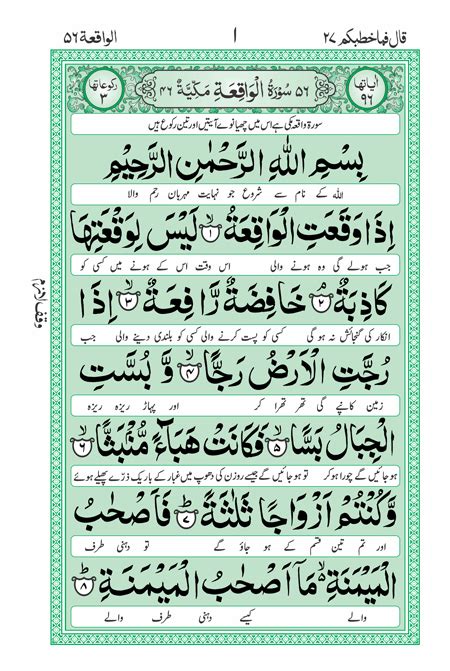 قال فماخطبکم ۲۷
ا
الواقعة ۵۶
اٰیاتها ۹۶
۵۶ سُوْرَةُ الْوَاقِعَةِ مَكِّيَّةٌ ۴۶
رکوعاتها ۳
سورۃ واقعہ مکی ہے اس میں چھیانوے آیتیں اور تین رکوع ہیں
بِسْمِ اللّٰهِ الرَّحْمٰنِ الرَّحِيْمِ
اللہ کے نام سے شروع جو نہایت مہربان رحم والا
اِذَا وَقَعَتِ الْوَاقِعَةُ ۙ﴿۱﴾ لَيْسَ لِوَقْعَتِهَا
جب ہولے گی وہ ہونے والی اس وقت اس کے ہونے میں کسی کو
كَاذِبَةٌ ۘ﴿۲﴾ خَافِضَةٌ رَّافِعَةٌ ۙ﴿۳﴾ اِذَا
انکار کی گنجائش نہ ہوگی کسی کو پست کرنے والی کسی کو بلندی دینے والی جب
رُجَّتِ الْاَرْضُ رَجًّا ۙ﴿۴﴾ وَّ بُسَّتِ
زمین کانپے گی تھر تھرا کر اور پہاڑ ریزہ ریزہ
الْجِبَالُ بَسًّا ۙ﴿۵﴾ فَكَانَتْ هَبَآءً مُّنْۢبَثًّا ۙ﴿۶﴾
ہو جائیں گے چورا ہوکر تو ہو جائیں گے جیسے روزن کی دھوپ میں غبار کے باریک ذرّے پھیلے ہوئے
وَّ كُنْتُمْ اَزْوَاجًا ثَلٰثَةً ؕ﴿۷﴾ فَاَصْحٰبُ
اور تم تین قسم کے ہو جاؤ گے تو دہنی طرف
الْمَيْمَنَةِ ۙ مَاۤ اَصْحٰبُ الْمَيْمَنَةِ ؕ﴿۸﴾
والے کیسے دہنی طرف والے